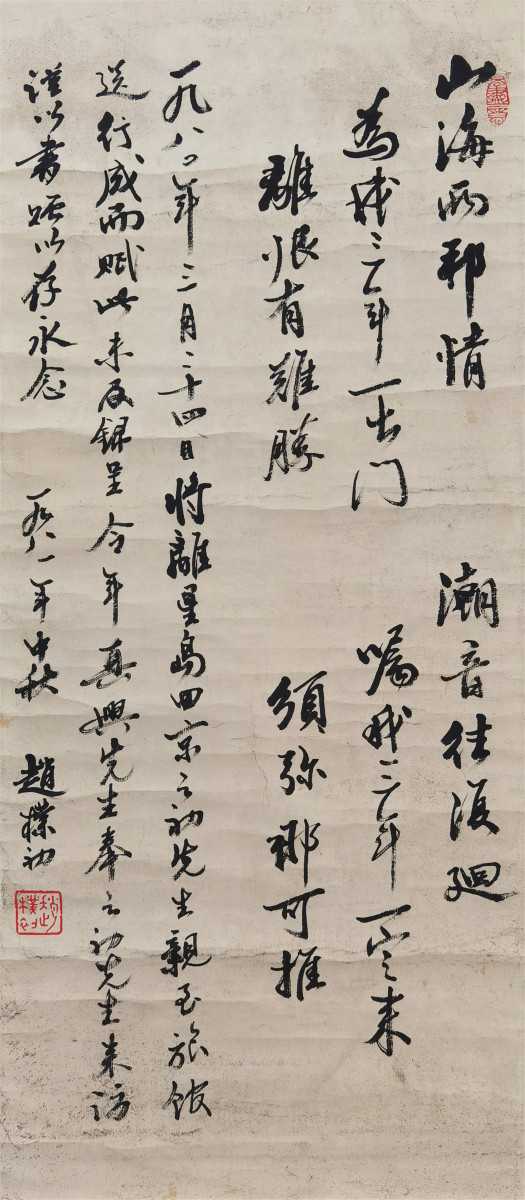 山海兩邦情 潮音往復迴
為我三年一出门 囑我三年一定来
離恨有難勝 須弥那可推
一九八〇年三月二十四日將離星島回京之初先生親至旅館
送行感而賦此未及録呈今年真興先生奉之初先生来訪
謹以書贈以存永念 一九八一年中秋 趙樸初
趙樸初